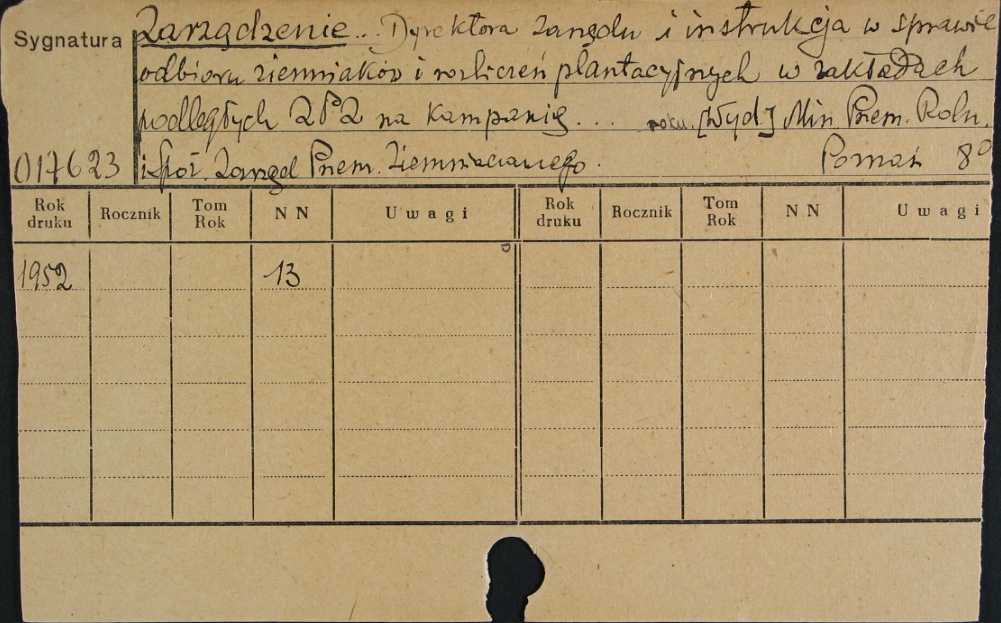 Sygnatura
Zarządzenie ... Dyrektora Zarządu i instrukcja w sprawie
odbioru ziemniaków i rozliczeń plantacyjnych w zakładach
podległych ZPZ na kampanię ... roku. [Wyd] Min. Przem. Roln.
017623 i Spoż. Zarząd Przem. Ziemniaczanego. Poznań 8°
Rok druku Rocznik Tom Rok NN Uwagi Rok druku Rocznik Tom Rok NN Uwagi
1952 13